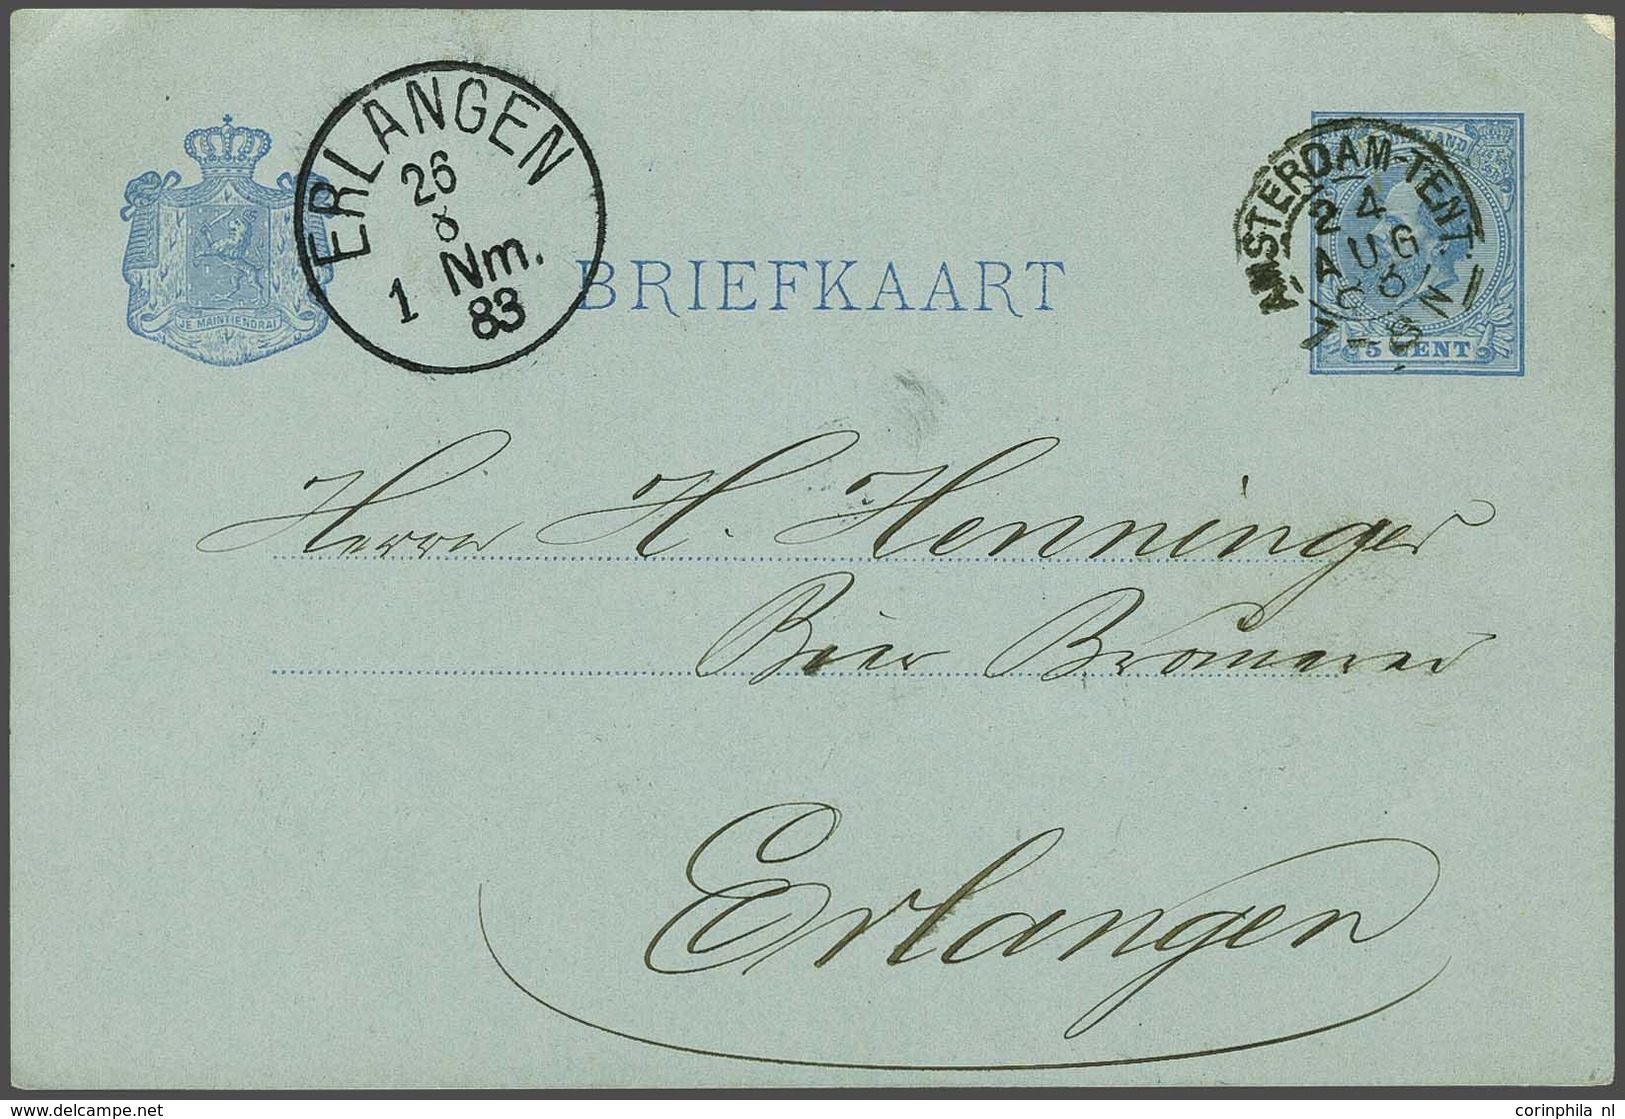 ERLANGEN
26
8
1 Nm.
83
JE MAINTIENDRAI
BRIEFKAART
AMSTERDAM-TENT.
24
AUG
8
7-8N
5 CENT
Herrn H. Henninger
Bier Brauerei
Erlangen
delcampe.net
corinphila nl